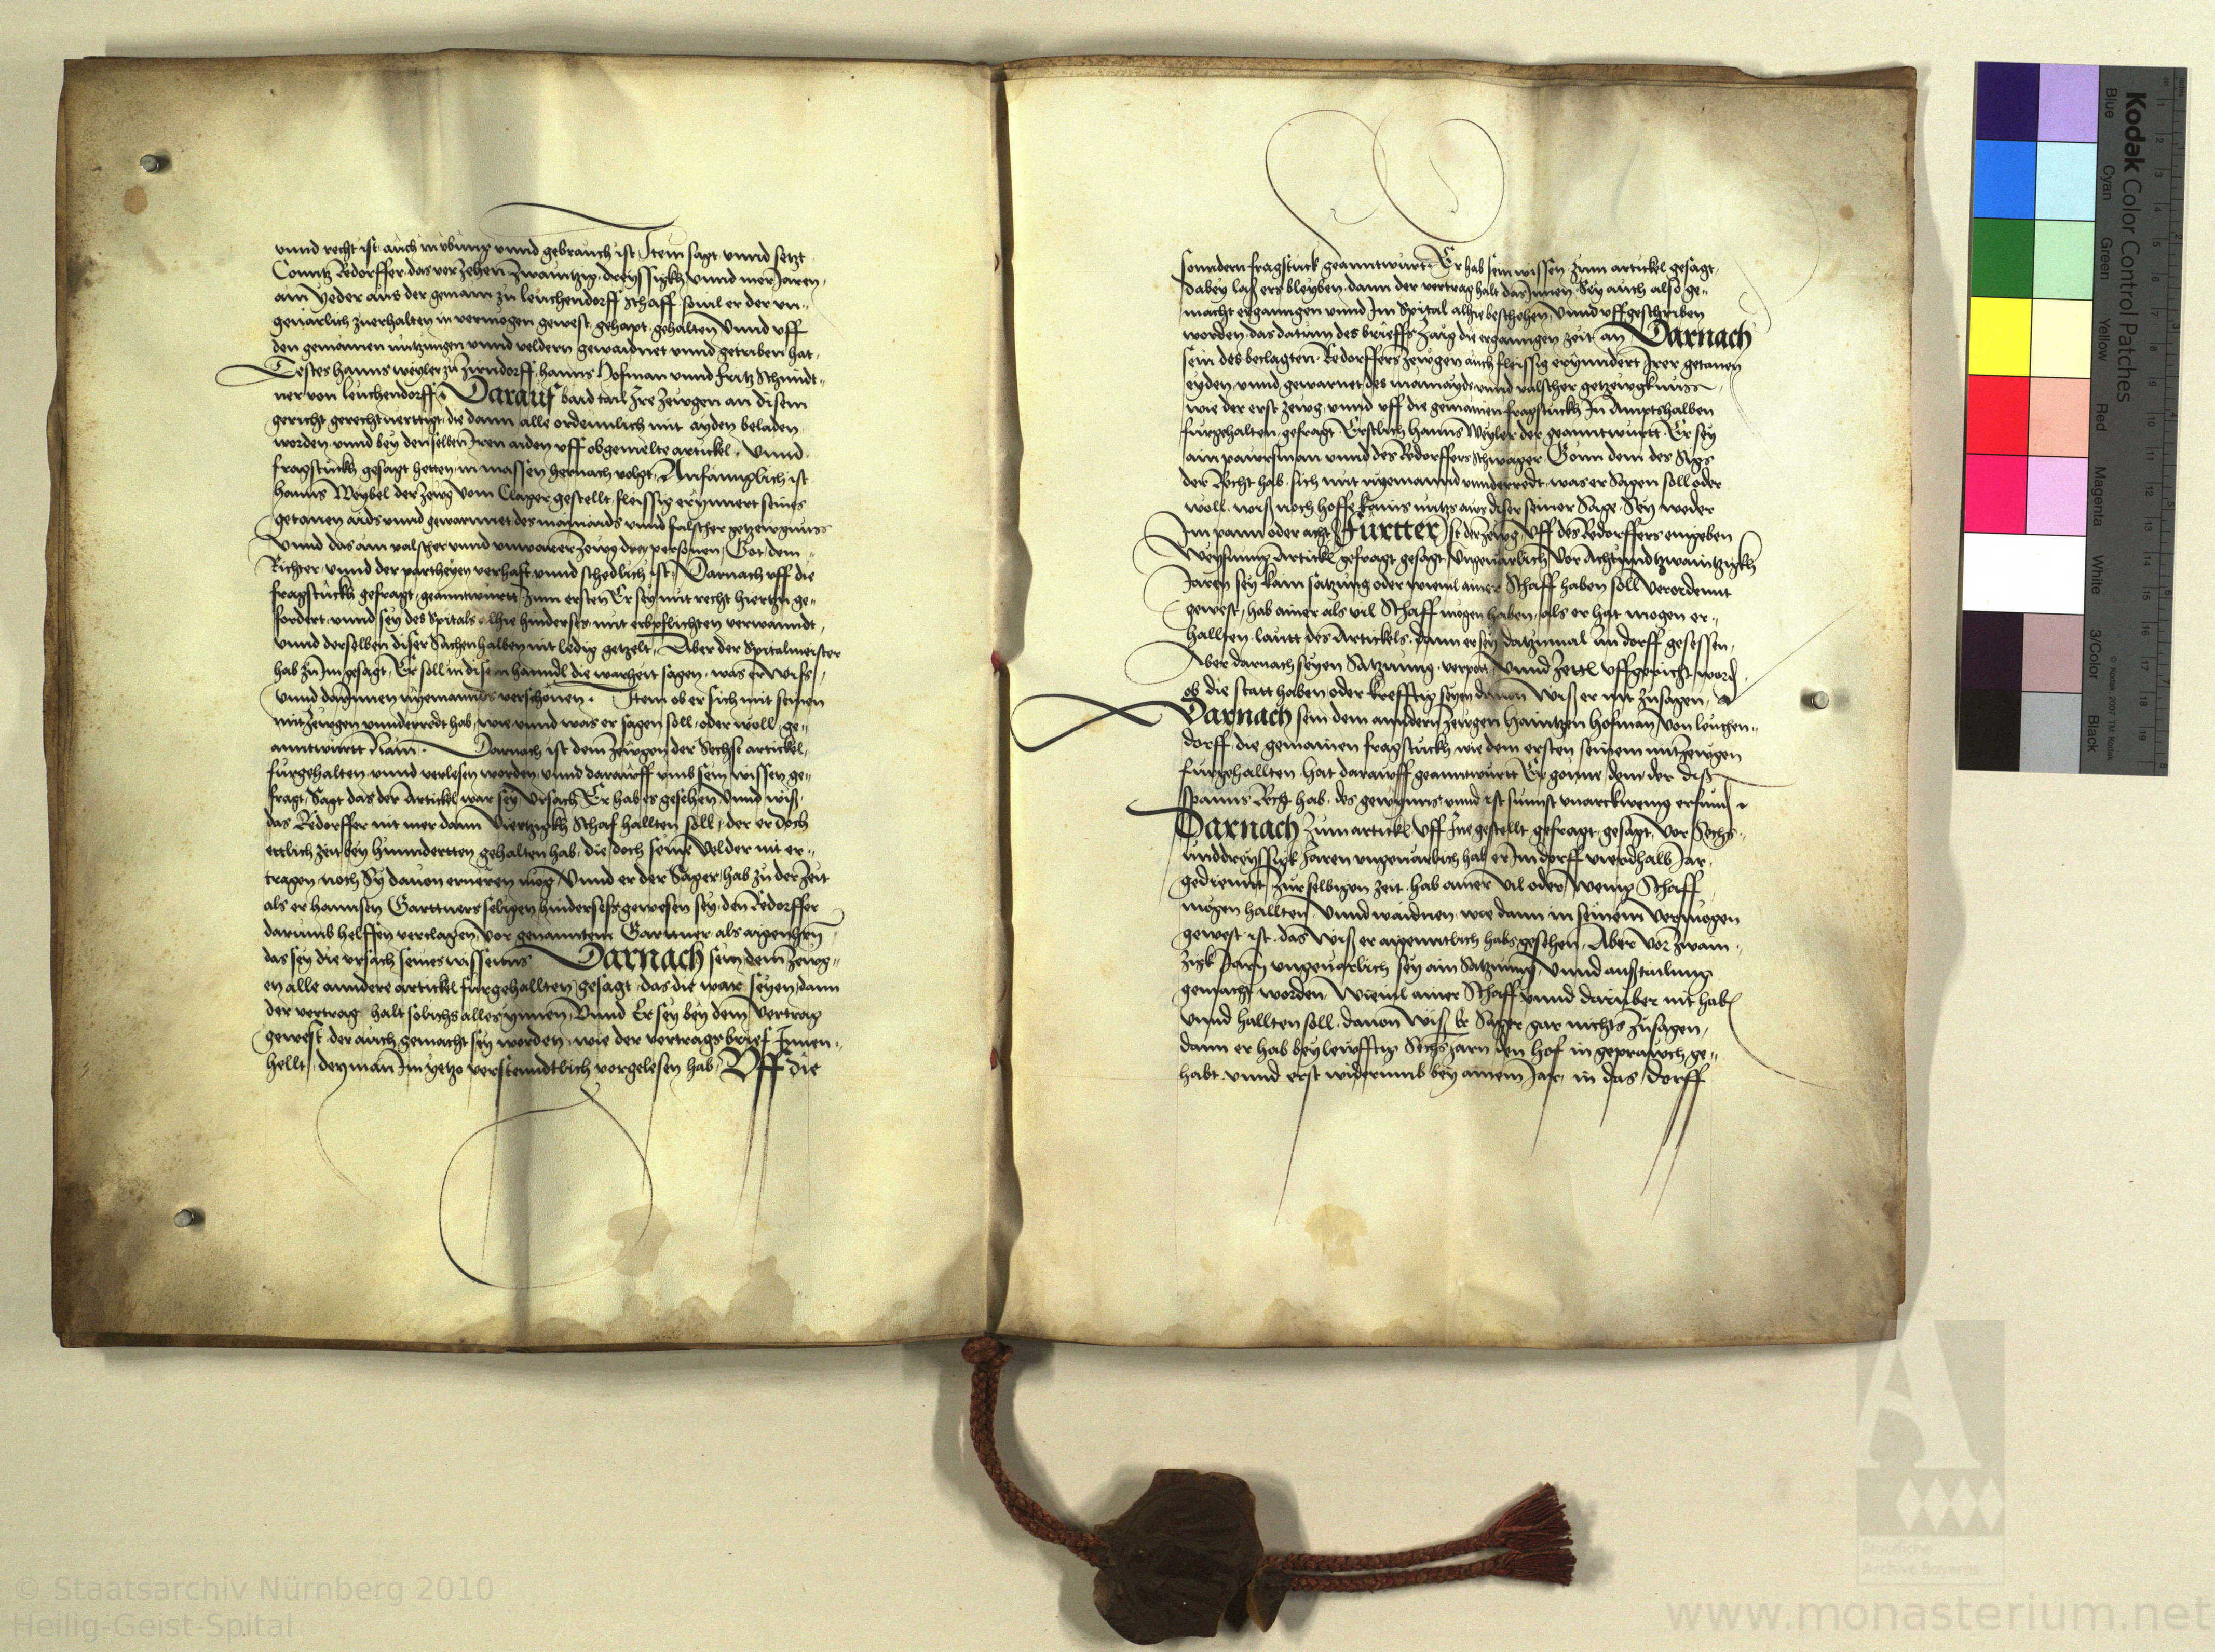 vnnd recht ist auch in vbung vnnd gebrauch ist Item sagt vnnd setzt
Conntz Redorffer das vor zehen zwaintzig dreyssigkh vnnd mer Jaren
ain yeder aus der gemain zu leuchendorff schaff souil er der vn=
geuarlich zuerhalten in vermogen gewest gehapt gehalten vnnd vff
den gemainen nutzungen vnnd veldern gewaidnet vnnd getriben hat
Testes hanns weyler zu Zirndorff hanns Hofman vnnd fritz Schmidt=
ner von leuchendorff Darauf baid tail Ire zewgen an disem
gericht gerechtuerttigt die dann alle ordennlich mit ayden beladen
worden vnnd bey denselben Iren aiden vff obgemelte artickel vnnd
fragstuckh gesagt hetten in massen hernach volgt Anfanngklich ist
hanns Weybel der zewg vom Clager gestellt fleissig erynnert seines
getanen aids vnnd gewarnnet des mainaids vnnd falscher getzewgnuss
Vnnd das ain valscher vnnd vnwarer zewg drey personen Got dem
Richter vnnd der partheyen verhaft vnnd schedlich ist Darnach vff die
fragstuckh gefragt geanntwurtt zum ersten Er sey mit recht hiertzu ge=
fordert vnnd sey des Spitals alhie hindersess mit erbpflichten verwanndt
vnnd derselben diser sachen halben nit ledig getzelt Aber der Spitalmeister
hab zu Im gesagt Er soll in disem hanndl die warheit sagen was er wiss
vnnd darInnen nyemannds verschonen Item ob er sich mit seinen
mitzewgen vnnderredt hab wie vnnd was er sagen soll oder woll ge=
anntwurtt Nain Darnach ist dem zewgen der Sechst artickel
furgehalten vnnd verlesen worden vnnd darauff vmb sein wissen ge=
fragt Sagt das der Artickel war sey vrsach Er hab es gesehen vnnd wiss
das Redorffer nit mer dann Viertzigkh Schaf hallten soll der er doch
ettlich zeit bey hunndertten gehalten hab die doch seine velder nit er=
tragen noch Sy dauon erneren mog Vnnd er der Sager hab zu der zeit
als er hannsen Garttners seligen hindersess gewesen sey den Redorffer
darumb helffen verclagen vor genanntem Garttner als aigenhern
das sey die vrsach seines wissenns Darnach sein dem zewg=
en alle anndere artickel furgehallten gesagt das die war seyen dann
der vertrag halt solichs alles ynnen Vnnd Er sey bey dem Vertrag
gewest der auch gemacht sey worden wie der vertragsbrief Innen=
hellt den man Im yetzo verstenndtlich vorgelesen hab Vff die
sonndern fragstuck geanntwurt Er hab sein wissen zum artickel gesagt
dabey lass ers bleyben dann der vertrag halt das Innen Sey auch also ge=
macht erganngen vnnd Im Spital alhie beschehen vnnd vffgeschriben
worden das datum des brieffs zaig die erganngen zeit an Darnach
sein des beclagten Redorffers zewgen auch fleissig erynndert Irer getanen
eyden vnnd gewarnet des mainayds vnnd valscher getzewgknuss
wie der erst zewg vnnd vff die gemainen fragstuckh In Amptshalben
furgehalten gefragt Erstlich hanns Weyler der geanntwurtt Er sey
ain pawrsman vnnd des Redorffers schwager Gonn dem des Sigs
der Recht hab sich mit nyemannd vnnderredt was er Sagen soll oder
woll wiss noch hoffe kains nutzs aws diser seiner Sage Sey weder
Im pann oder acht Furtter Ist der zewg vff des Redorffers eingeben
Weysung Artickl gefragt gesagt Vngeuarlich Vor Achtundtzwaintzigkh
Jaren sey kain satzung oder wieuil ainer Schaff haben soll verordennt
gewest hab ainer als vil Schaff mogen haben als er hat mogen er=
hallten lautt des Artickels dann er sey datzumal im dorff gesessen
Aber darnach seyen Satzung verpot vnnd Zettl vffgericht word
ob die statt haben oder krefftig seyen dauon Wiss er nit zusagen
Darnach sein dem anndern zewgen haintzen hofman von leuchen=
dorff die gemainen fragstuckh wie dem ersten seinem mitzewgen
furgehallten hat darauff geanntwurtt Er gonne dem der diss
spanns Recht hab des gewynns vnnd ist sunnst erfund
Darnach zum artickl vff Ine gestellt gefragt gesagt vor Sechs=
unddreyssigk Jaren vngeuarlich hab er Im dorff vierdhalb Jar
gediennt zur selbigen zeit hab ainer vil oder wenig Schaff
mogen hallten vnnd waidnen wie dann in seinem Vermogen
gewest ist das wiss er aigenntlich habs gesehen Aber vor zwain=
zigk Jarn vngeuarlich sey ain Satzung vnnd ausstailung
gemacht worden Wieuil ainer Schaff vnnd daruber nit hab
vnnd hallten soll dauon wiss Er Sager gar nichts zusagen
dann er hab beyleufftig Sechs Jarn den hof in geprawch ge=
habt vnnd erst widerumb bey ainem Jar in das dorff
Kodak Color Control Patches
Blue Cyan Green Yellow Red Magenta White 3/Color Black
© Staatsarchiv Nürnberg 2010
Heilig-Geist-Spital
www.monasterium.net